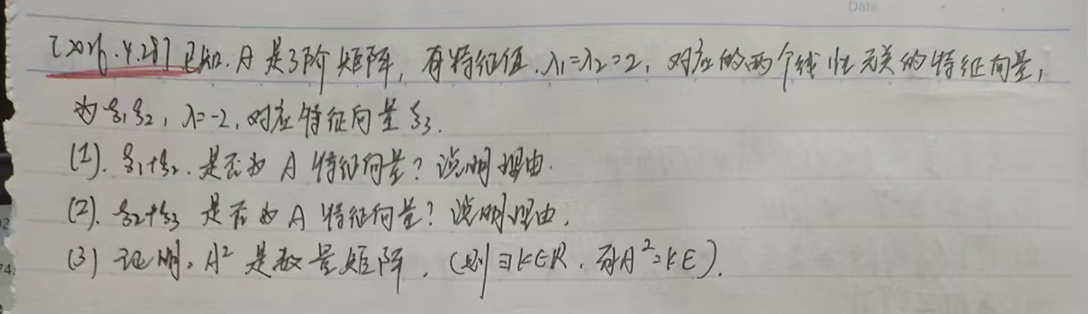 Date
[2026.4.28] 已知. A 是3阶矩阵, 有特征值. λ₁=λ₂=2, 对应的两个线性无关的特征向量,
为 ξ₁ ξ₂, λ=-2, 对应特征向量 ξ₃.
(1). ξ₁+ξ₂. 是否为 A 特征向量? 说明理由.
(2). ξ₂+ξ₃ 是否为 A 特征向量? 说明理由.
(3) 证明. A² 是数量矩阵. (即 ∃k∈R. 有A²=kE).